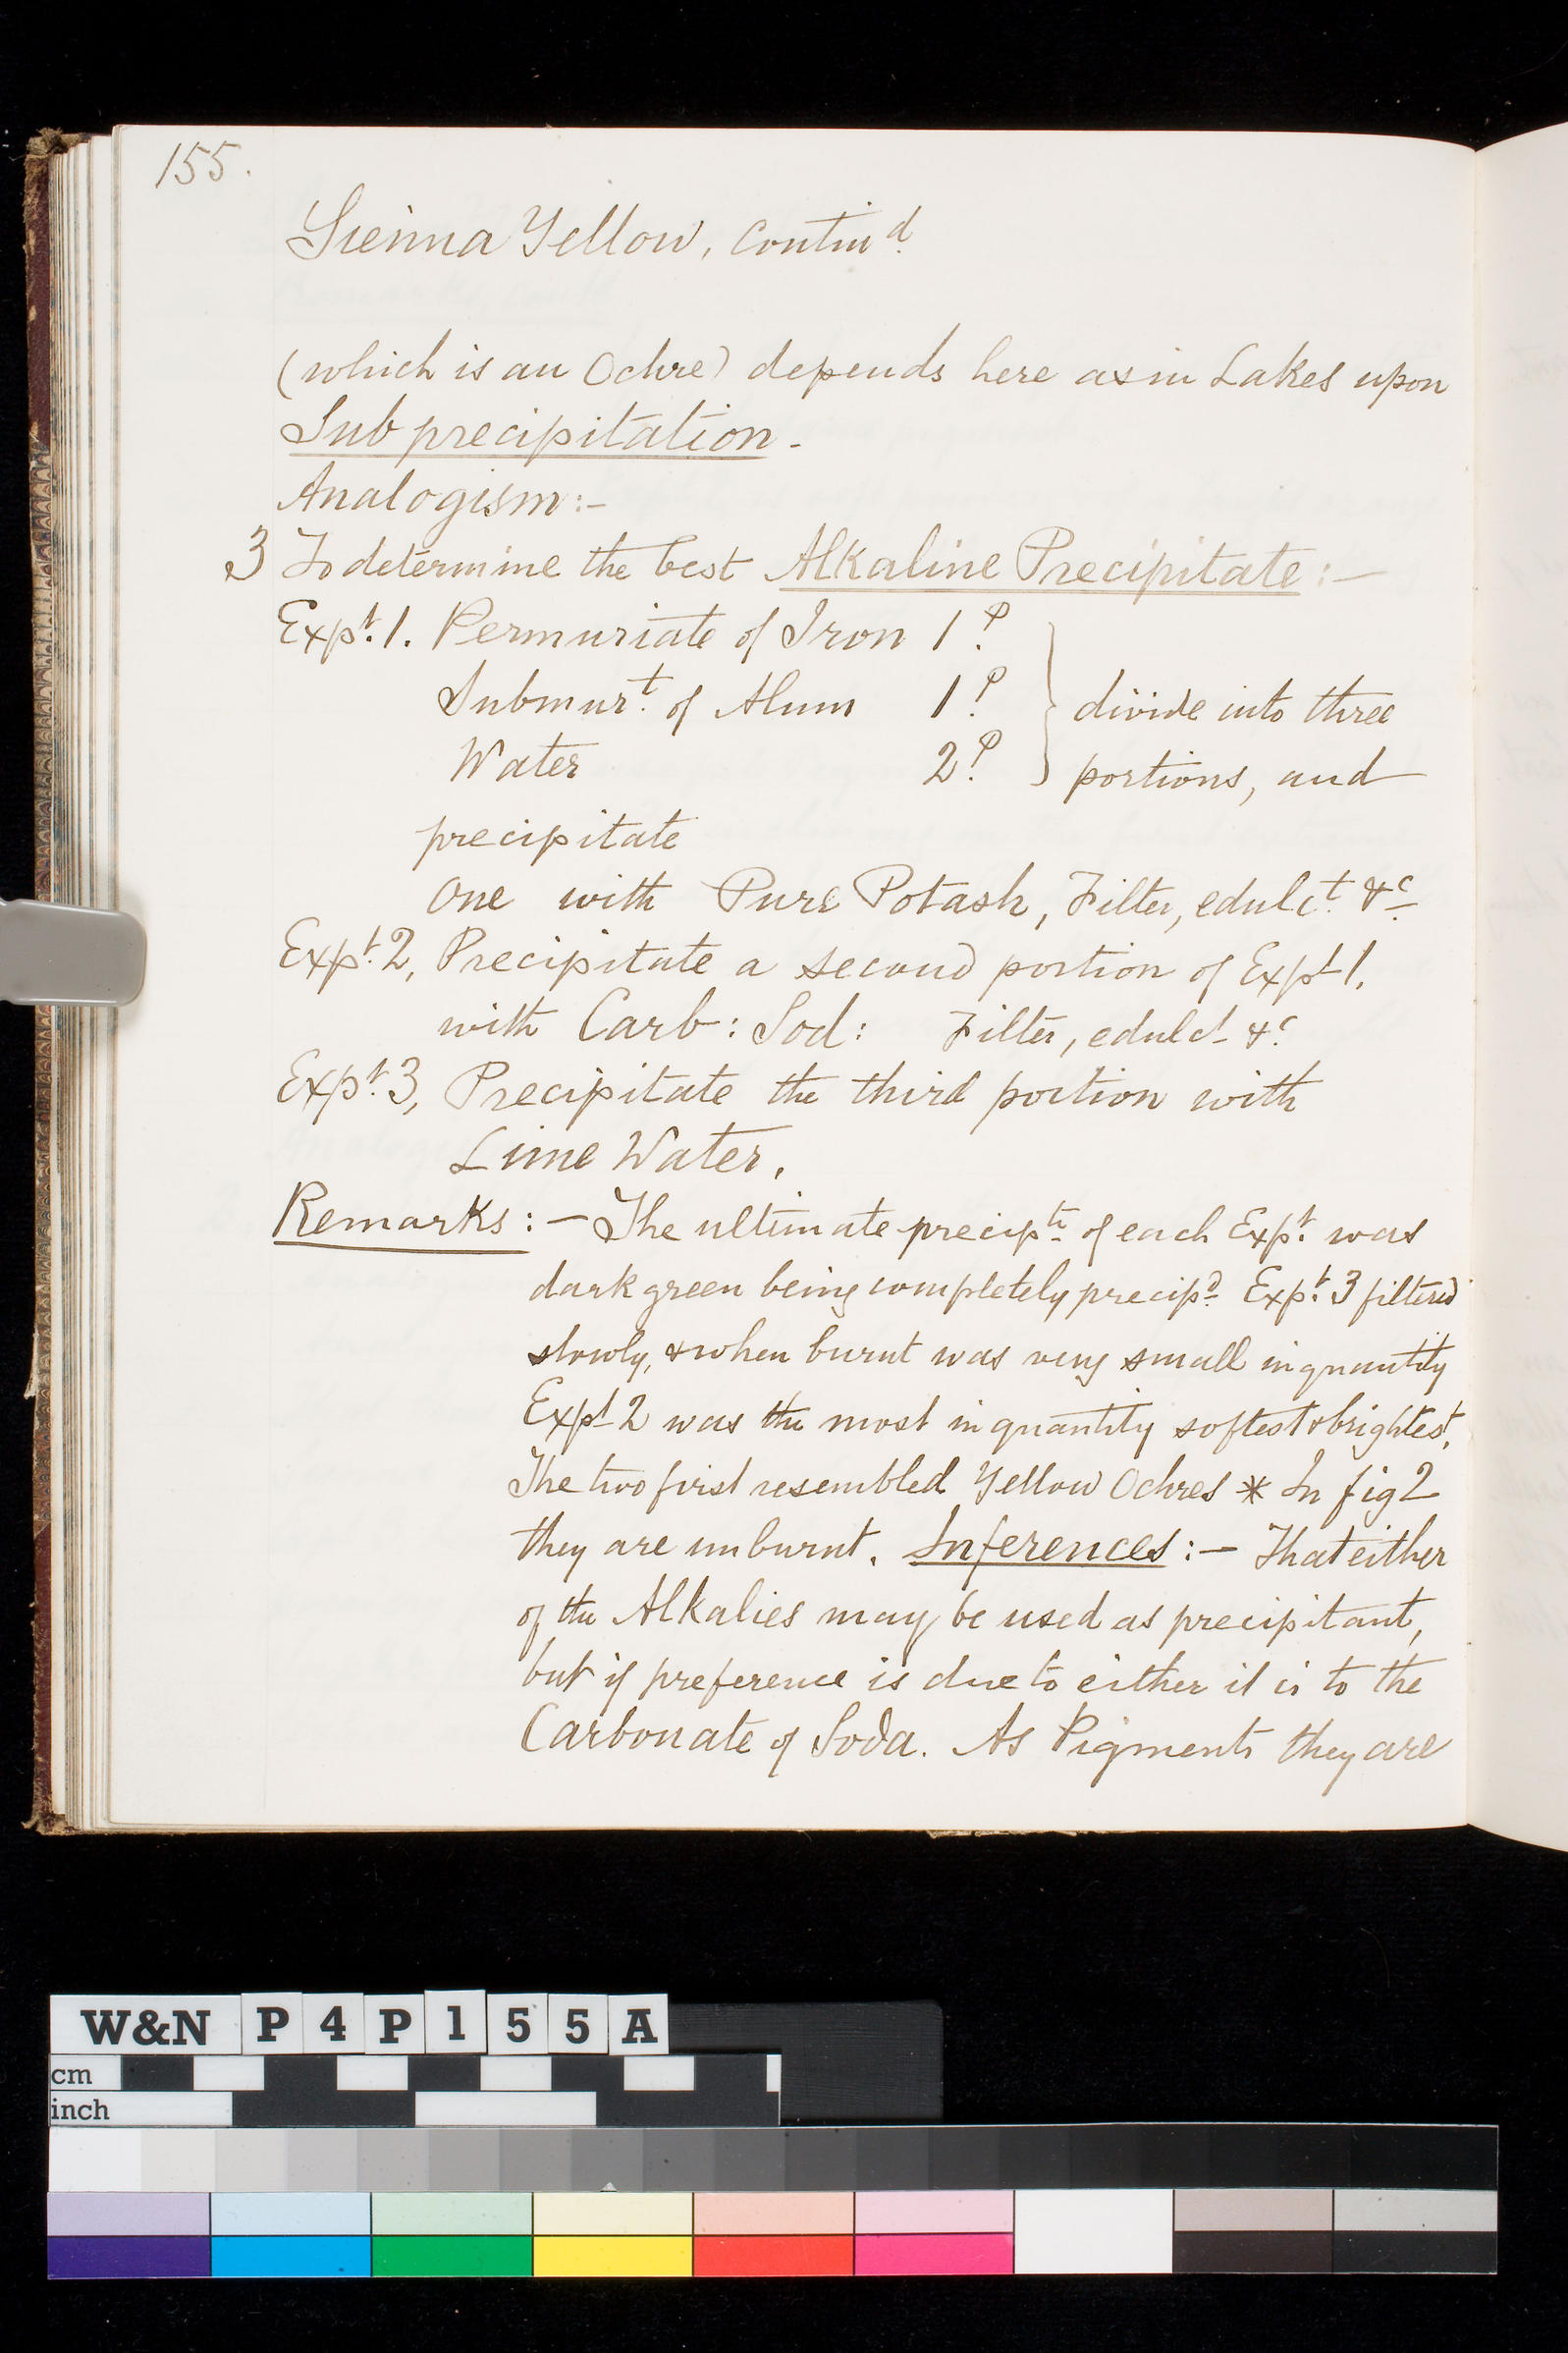 155.
Sienna Yellow, Contin.d
(which is an Ochre) depends here as in Lakes upon
Sub precipitation -
Analogism:-
3 To determine the best Alkaline Precipitate :-
Exp.t 1. Permuriate of Iron 1.P
Submur.t of Alum 1.P } divide into three
Water 2.P portions, and
precipitate
One with Pure Potash, Filter, edulc.t &c
Exp.t 2, Precipitate a second portion of Expt 1.
with Carb: Sod: Filter, edulct &c
Exp.t 3, Precipitate the third portion with
Lime Water.
Remarks :- The ultimate precip.te of each Exp.t was
dark green being completely precip.d Exp.t 3 filtered
slowly, & when burnt was very small in quantity
Expt 2 was the most in quantity softest & brightest.
The two first resembled Yellow Ochres * In fig 2
they are unburnt. Inferences :- That either
of the Alkalies may be used as precipitant,
but if preference is due to either it is to the
Carbonate of Soda. As Pigments they are
W&N P4P155A
cm
inch